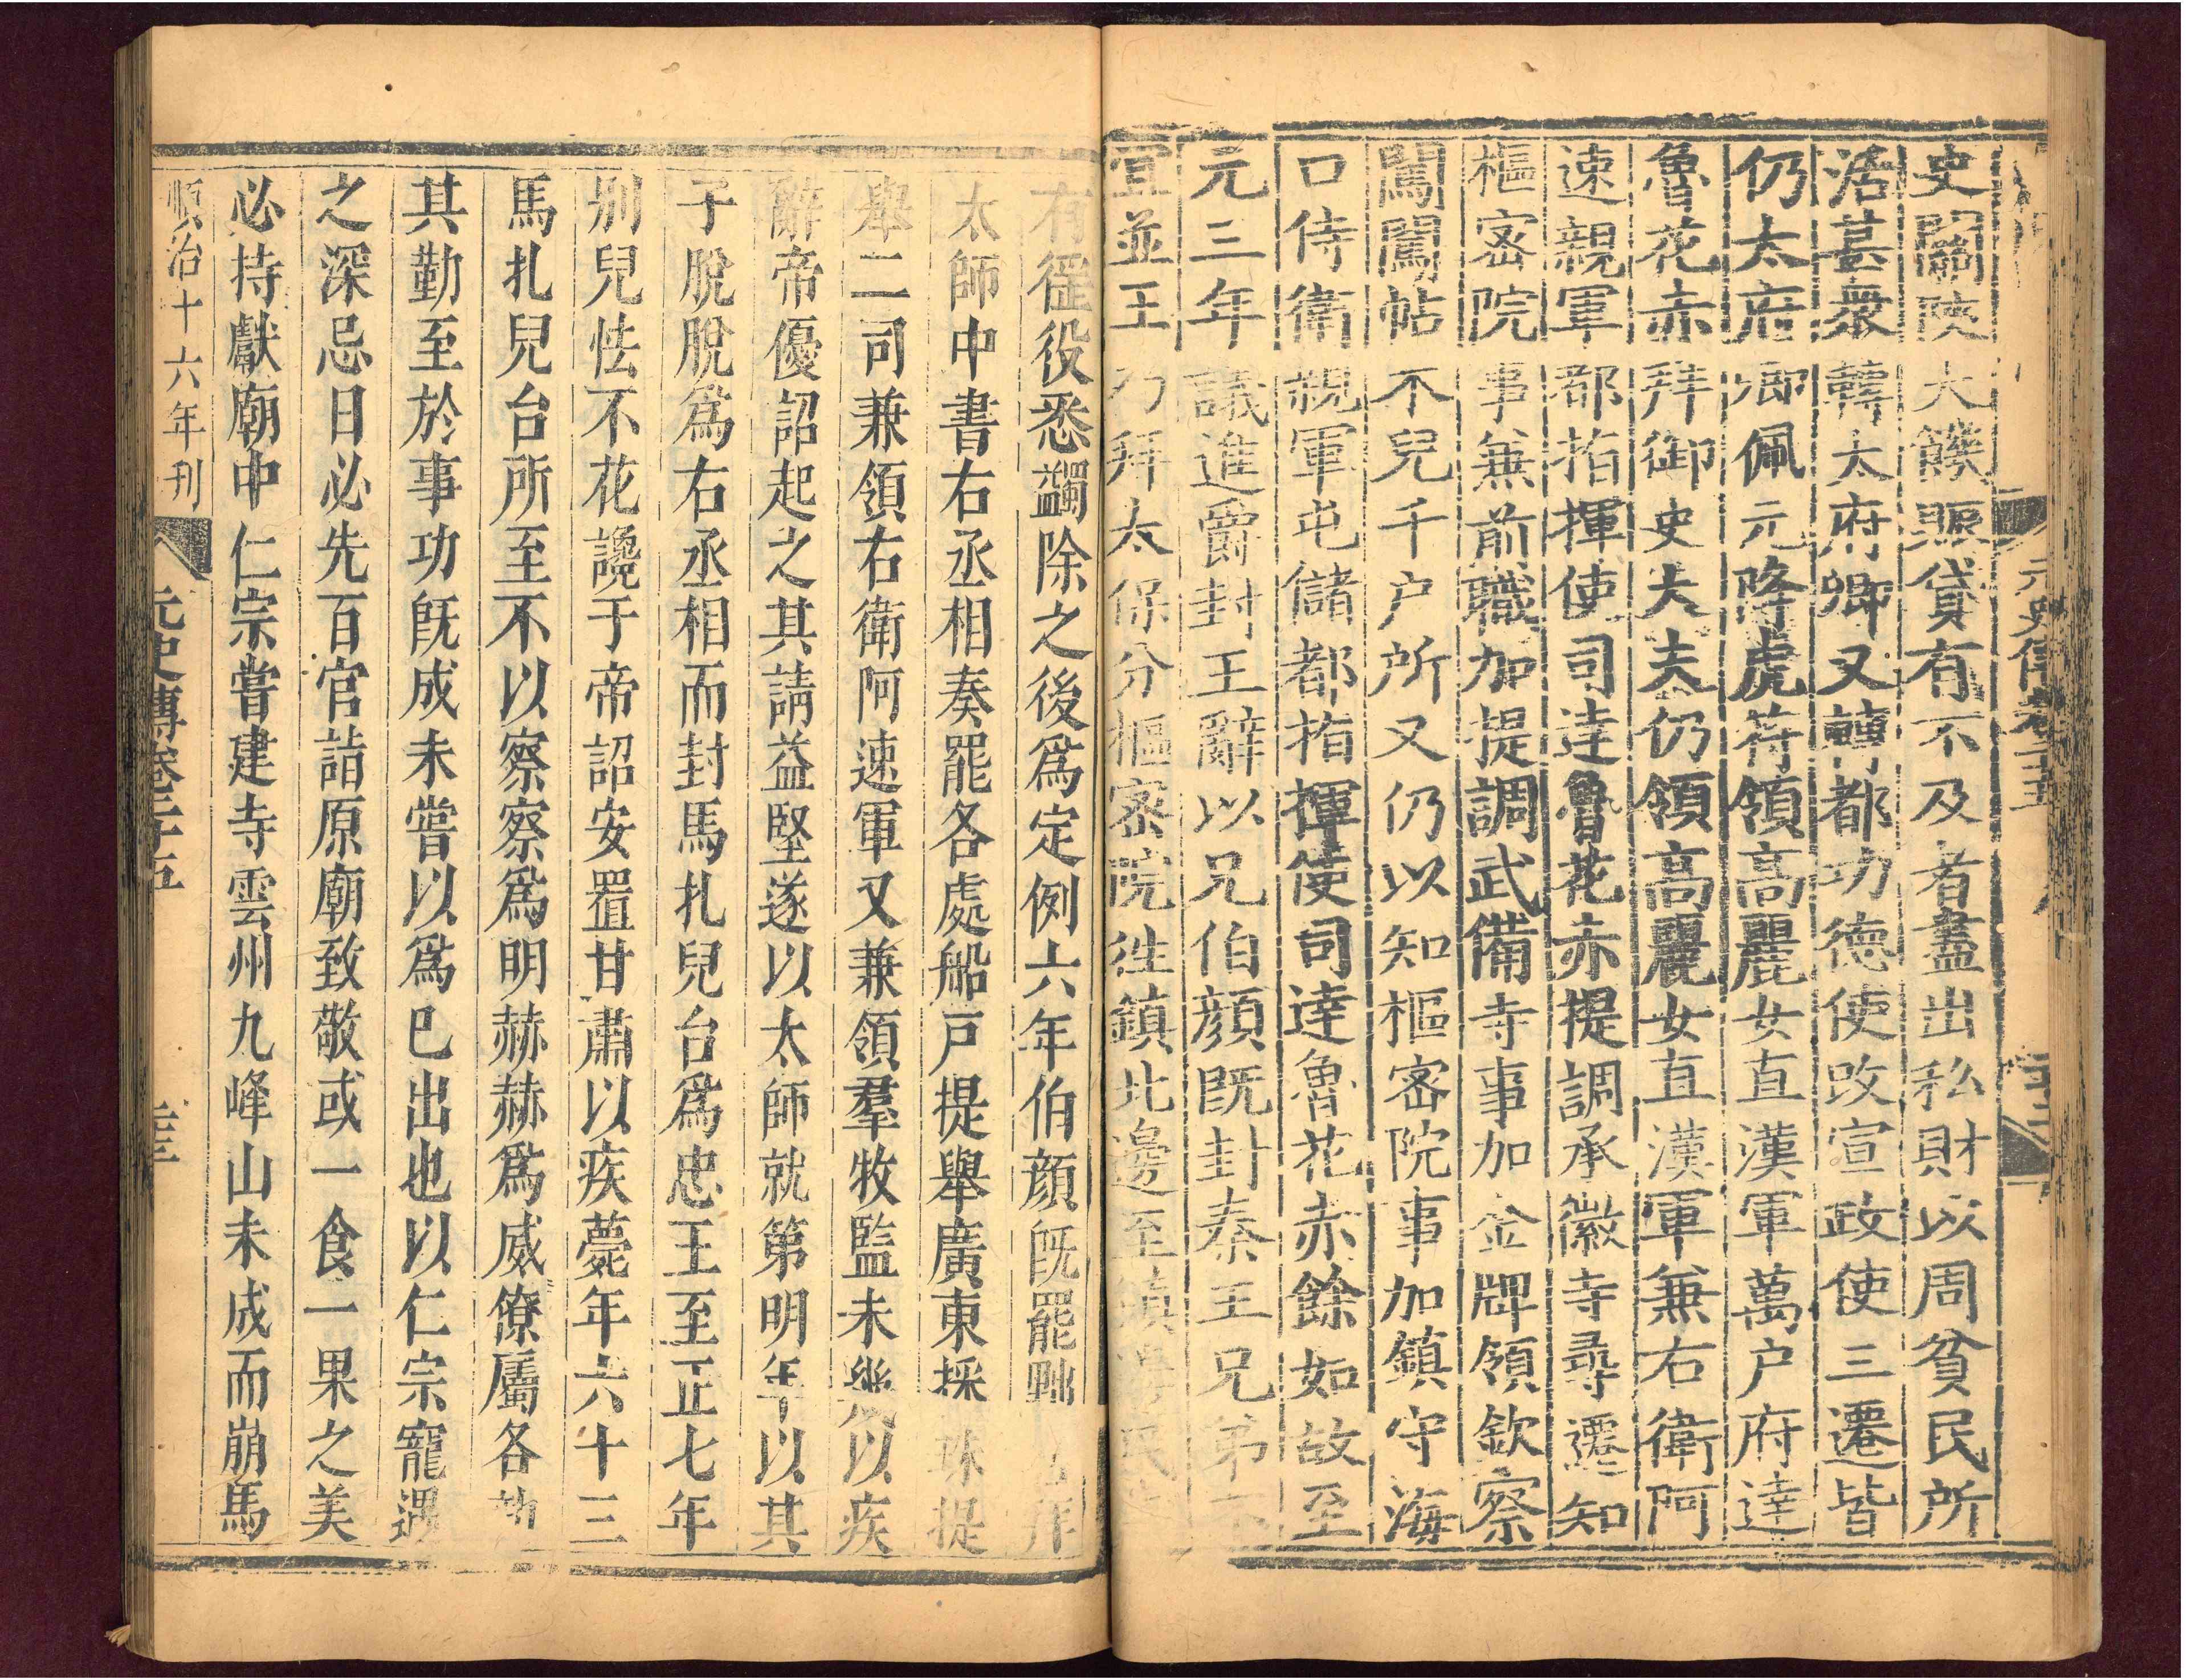 元史傳卷二十五
史關陝大饑賑貸有不及者盡出私財以周貧民所
活甚衆轉太府卿又轉都功德使改宣政使三遷皆
仍太府卿佩元降虎符領高麗女直漢軍萬户府達
魯花赤拜御史大夫仍領高麗女直漢軍兼右衛阿
速親軍都指揮使司達魯花赤提調承徽寺尋遷知
樞密院事兼前職加提調武備寺事加金牌領欽察
闖闖帖不兒千户所又仍以知樞密院事加鎮守海
口侍衛親軍屯儲都指揮使司達魯花赤餘如故至
元三年議進爵封王辭以兄伯顏既封秦王兄弟不
宜並王乃拜太保分樞密院往鎮北邊至鎮
有徭役悉蠲除之後爲定例六年伯顏既罷黜
太師中書右丞相奏罷各處船戸提舉廣東採珠提
舉二司兼領右衛阿速軍又兼領羣牧監未幾以疾
辭帝優詔起之其請益堅遂以太師就第明年以其
子脫脫爲右丞相而封馬扎兒台爲忠王至正七年
别兒怯不花讒于帝詔安置甘肅以疾薨年六十三
馬扎兒台所至不以察察爲明赫赫爲威僚屬各
其勤至於事功旣成未嘗以爲已出也以仁宗寵遇
之深忌日必先百官詣原廟致敬或一食一果之美
必持獻廟中仁宗嘗建寺雲州九峰山未成而崩馬
順治十六年刊
元史傳卷二十五